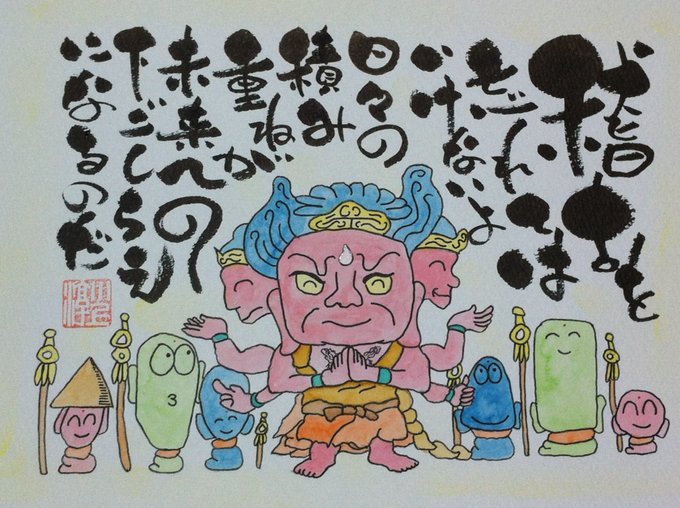 忘れては
いけないよ
日々の
積み
重ねが
未来への
下ごしらえ
になるのだ